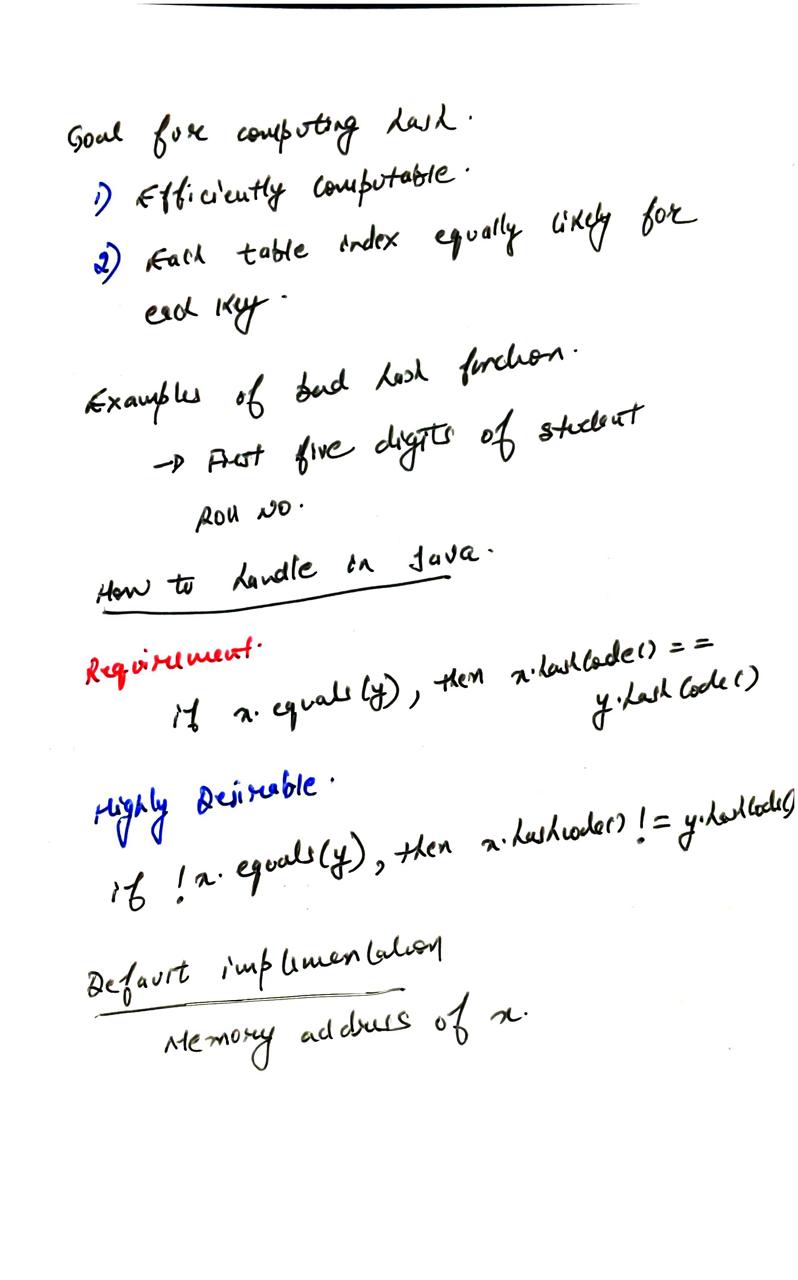 Goal for computing hash.
1) Efficiently computable.
2) Each table index equally likely for
each key.
Examples of bad hash function.
→ First five digits of student
Roll No.
How to handle in Java.
Requirement.
if x.equals(y), then x.hashCode() ==
y.hashCode()
Highly Desirable.
if !x.equals(y), then x.hashcode() != y.hashCode()
Default implementation
Memory address of x.